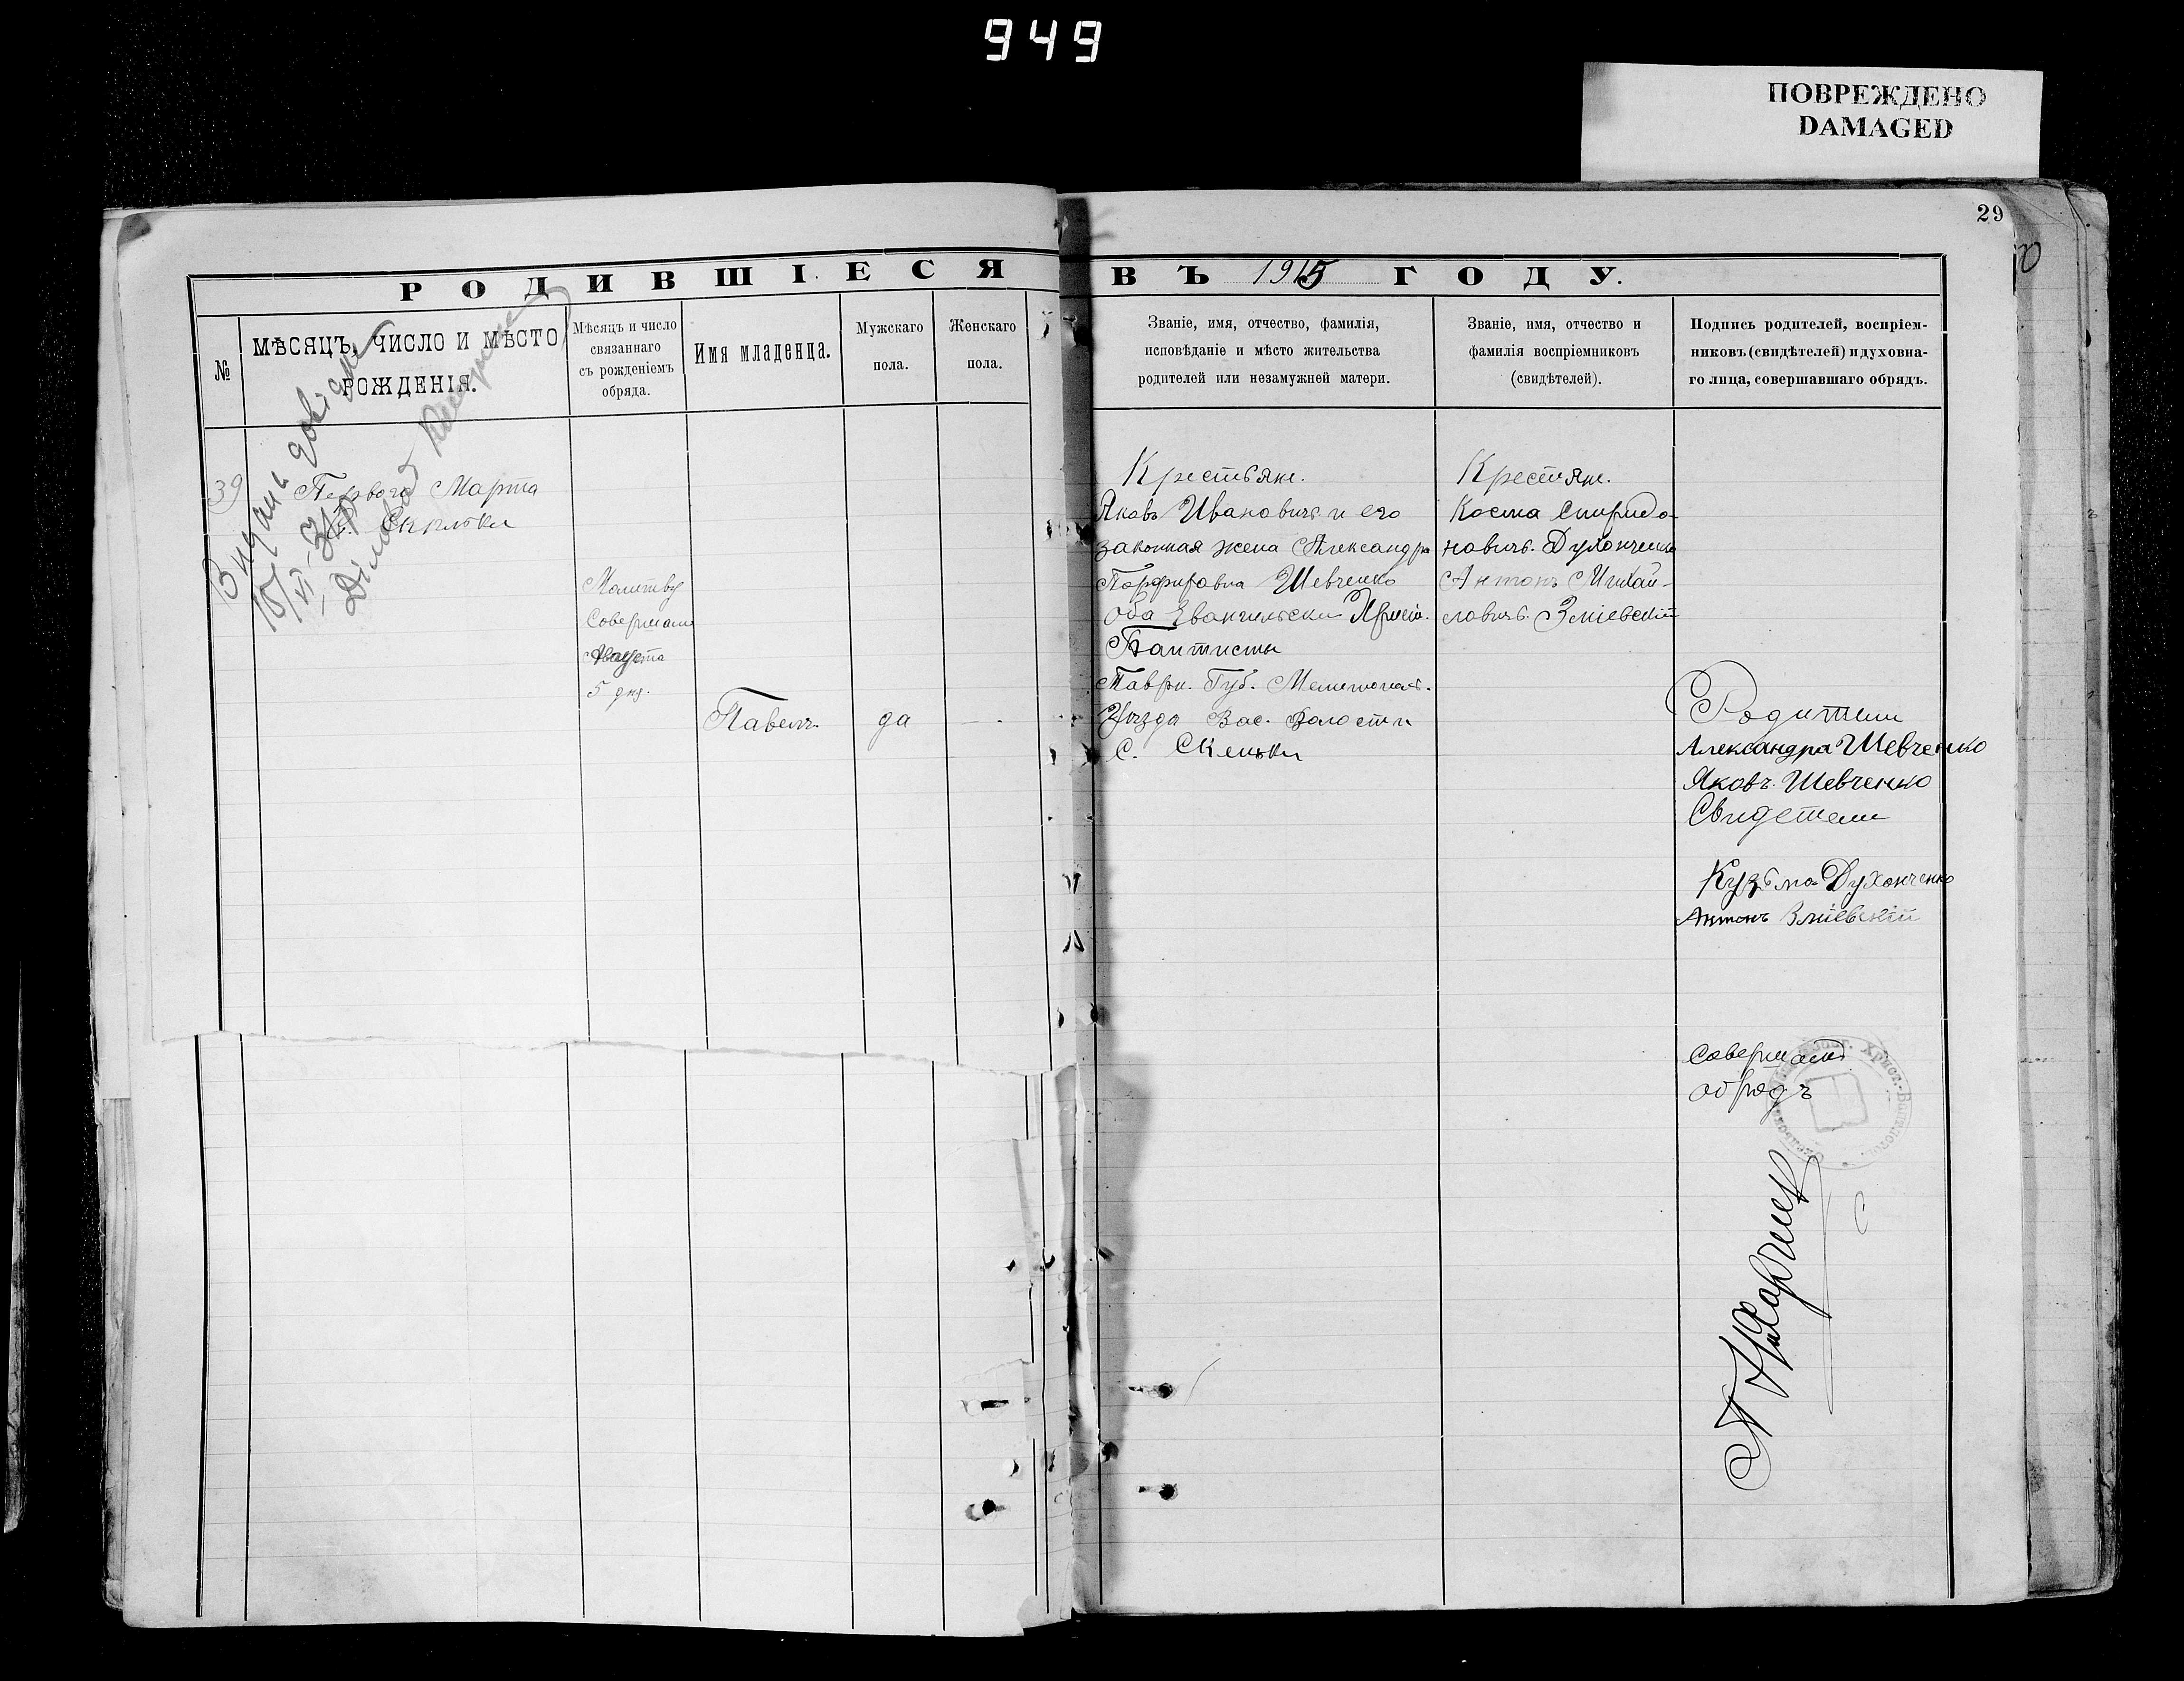 949
ПОВРЕЖДЕНО
DAMAGED
29
РОДИВШІЕСЯ ВЪ 1915 ГОДУ.
№
МѢСЯЦЪ, ЧИСЛО И МѢСТО
РОЖДЕНІЯ.
Мѣсяцъ и число
связаннаго
съ рожденіемъ
обряда.
Имя младенца.
Мужскаго
пола.
Женскаго
пола.
Званіе, имя, отчество, фамилія,
исповѣданіе и мѣсто жительства
родителей или незамужней матери.
Званіе, имя, отчество и
фамилія воспріемниковъ
(свидѣтелей).
Подпись родителей, воспріем-
никовъ (свидѣтелей) и духовна-
го лица, совершавшаго обрядъ.
39
Перваго Марта
С. Скельки
Видань
Молитву
Совершали
Августа
5 дня.
Павелъ.
да
Крестьяне.
Яковъ Ивановичъ и его
законная жена Александра
Порфировна Шевченко
Оба Евангельски Христи.
Баптисты
Таври. Губ. Мелитопол.
Уѣзда Вас. Волости
С. Скельки
Крестяне.
Косма Спиридо-
новичъ. Духонченко
Антонъ Михай-
ловичъ. Зміевскій
Родители
Александра Шевченко
Яковъ Шевченко
Свидетели
Кузьма Духонченко
Антонъ Зміевскій
Совершалъ
обрядъ